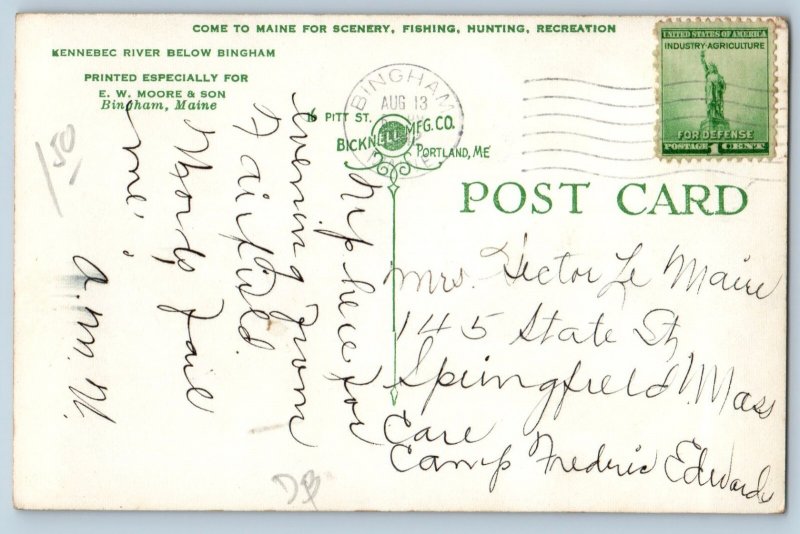 COME TO MAINE FOR SCENERY, FISHING, HUNTING, RECREATION
KENNEBEC RIVER BELOW BINGHAM
PRINTED ESPECIALLY FOR
E. W. MOORE & SON
Bingham, Maine
16 PITT ST.
BICKNELL MFG. CO.
PORTLAND, ME
BINGHAM
AUG 13
UNITED STATES OF AMERICA
INDUSTRY·AGRICULTURE
FOR DEFENSE
POSTAGE 1 CENT
POST CARD
Up here for
evening from
Fairfield.
Words fail
me!
A.M.N.
Mrs. Hector Le Maire
145 State St
Springfield, Mass
Care
Camp Frederic Edwards
1 50